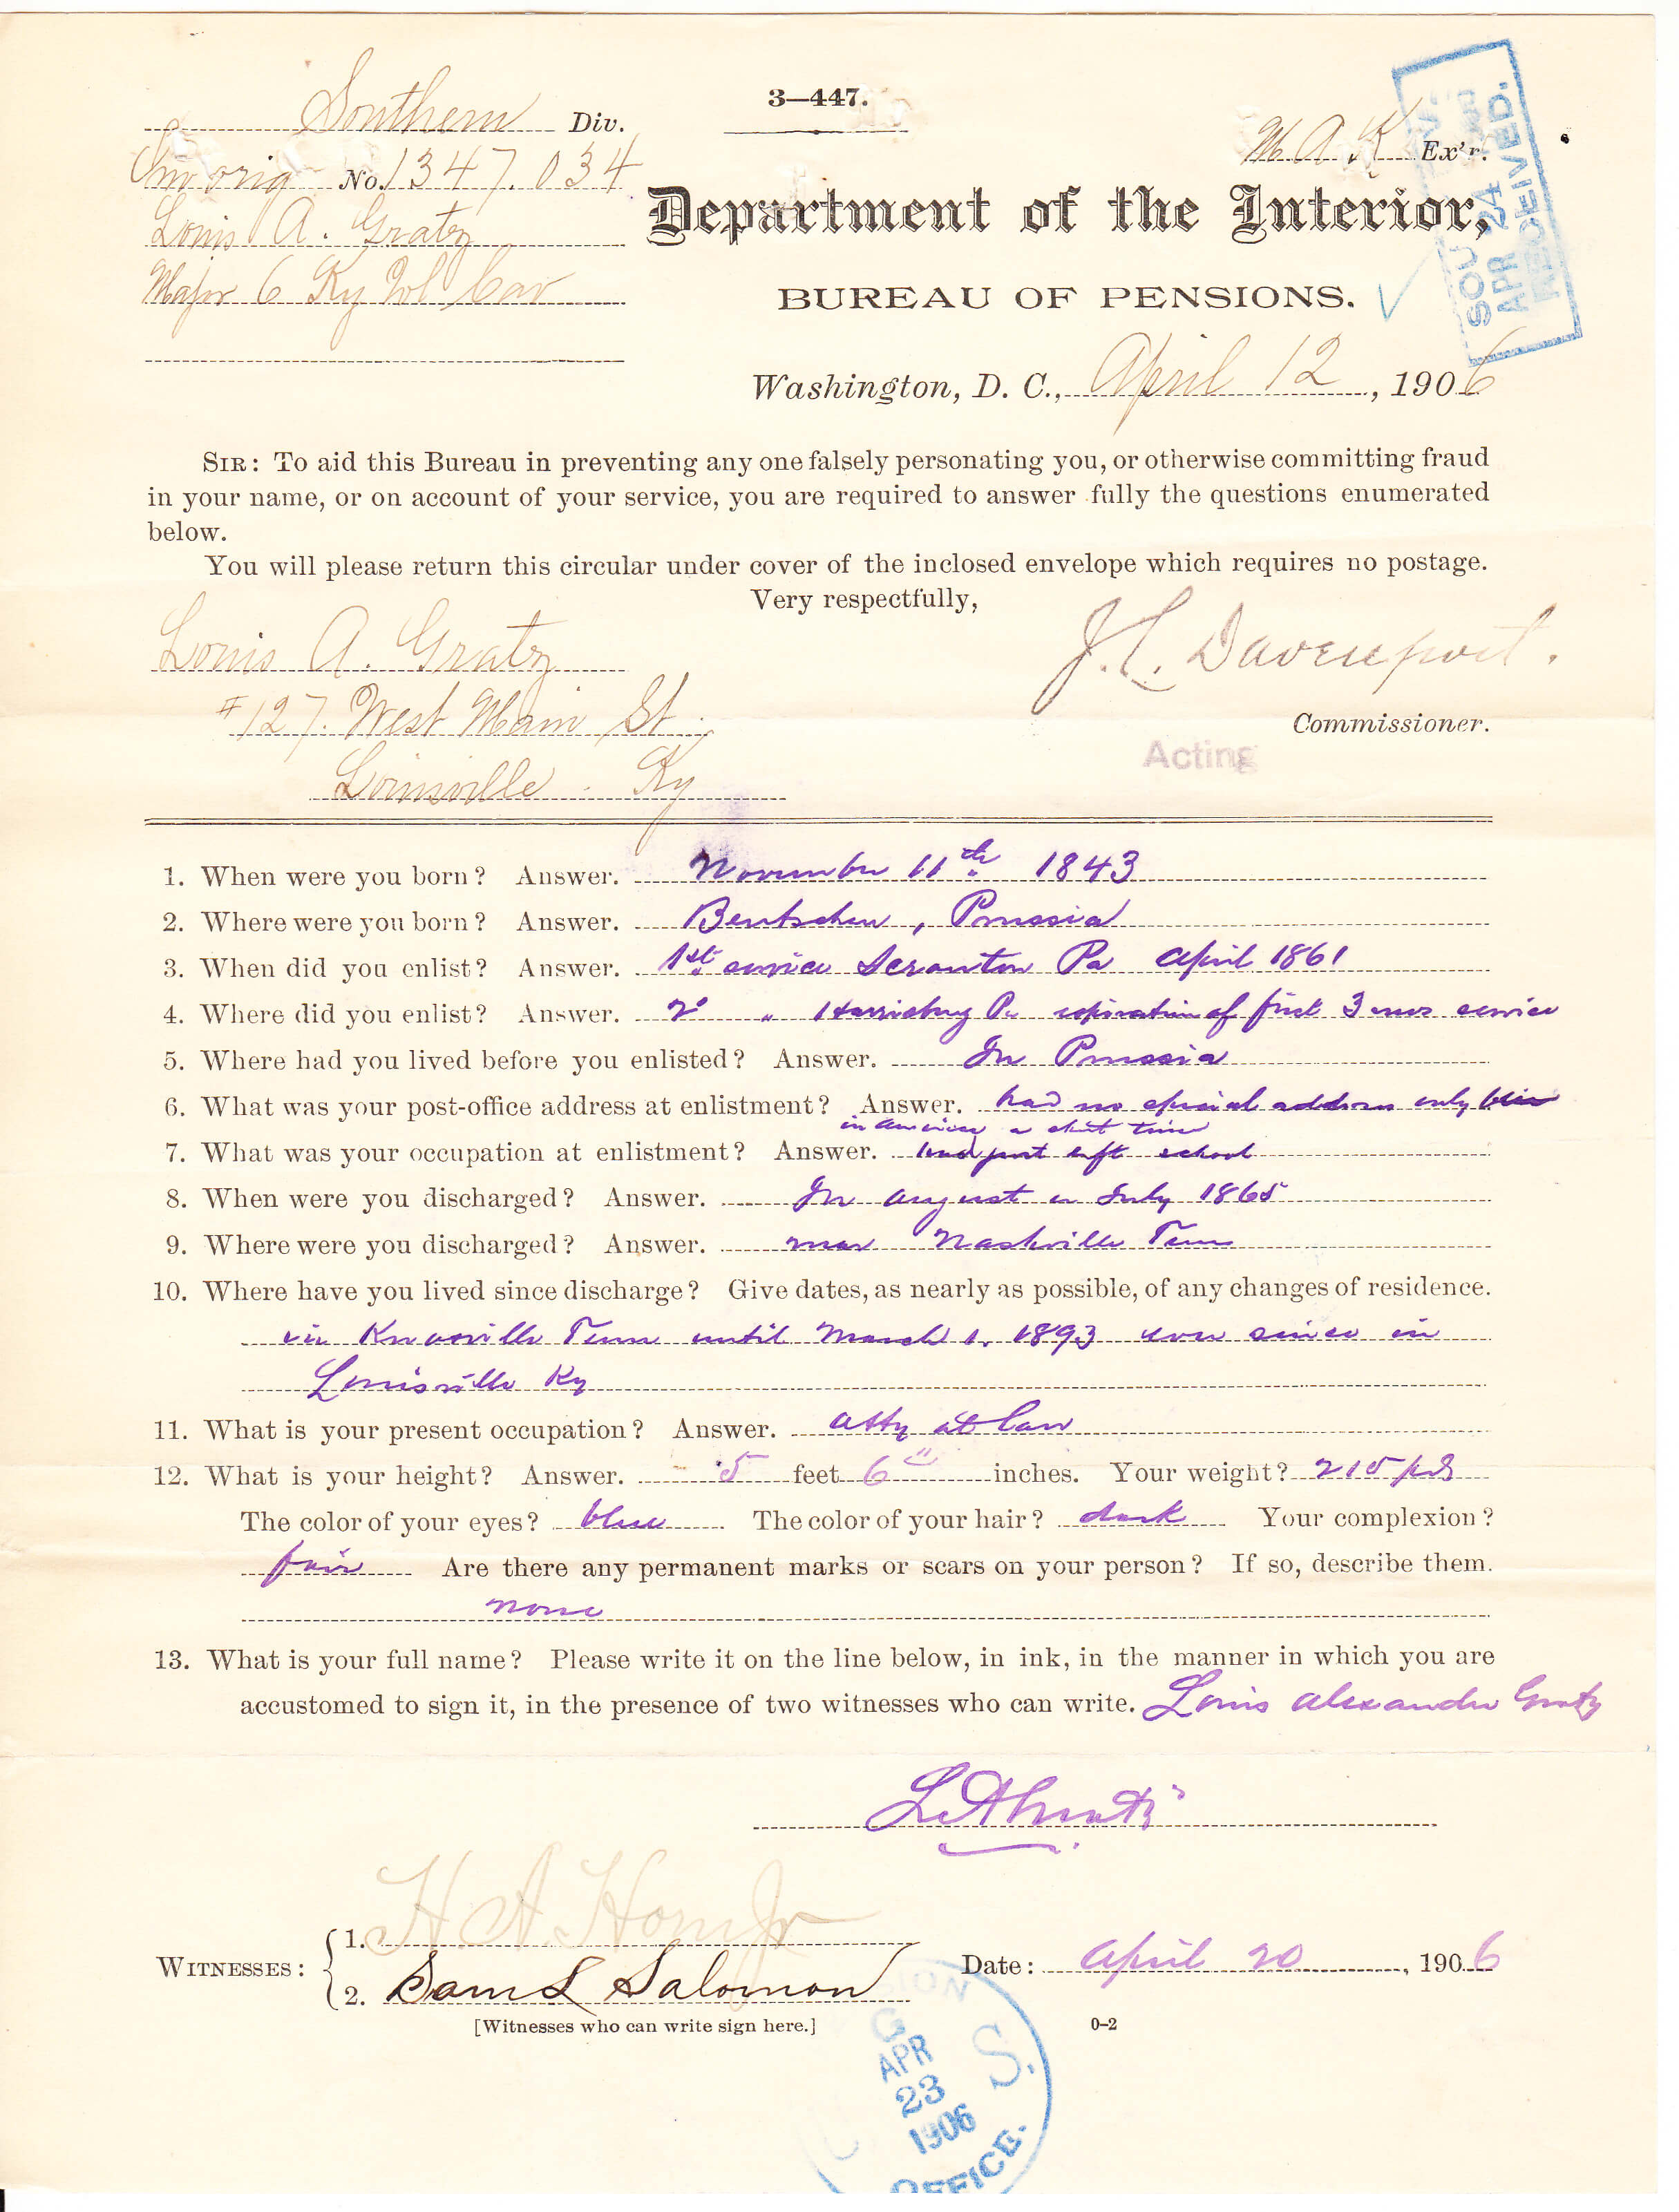 3—447.
Southern Div.
M A K Ex'r.
Inv orig No. 1347.034
Louis A. Gratz
Major 6 Ky Vol Cav
Department of the Interior,
BUREAU OF PENSIONS.
SOU
APR 24
RECEIVED.
Washington, D. C., April 12, 1906
SIR: To aid this Bureau in preventing any one falsely personating you, or otherwise committing fraud
in your name, or on account of your service, you are required to answer fully the questions enumerated
below.
You will please return this circular under cover of the inclosed envelope which requires no postage.
Very respectfully,
Louis A. Gratz
#127. West Main St.
Louisville. Ky
J. L. Davenport.
Commissioner.
Acting
1. When were you born? Answer. November 11th 1843
2. Where were you born? Answer. Bentschen, Prussia
3. When did you enlist? Answer. 1st service Scranton Pa April 1861
4. Where did you enlist? Answer. 2d " Harrisburg Pa expiration of first 3 mos service
5. Where had you lived before you enlisted? Answer. In Prussia
6. What was your post-office address at enlistment? Answer. had no special address only
in America a short time
7. What was your occupation at enlistment? Answer. had just left school
8. When were you discharged? Answer. In august or July 1865
9. Where were you discharged? Answer. near Nashville Tenn
10. Where have you lived since discharge? Give dates, as nearly as possible, of any changes of residence.
in Knoxville Tenn until March 1. 1893 ever since in
Louisville Ky
11. What is your present occupation? Answer. atty at law
12. What is your height? Answer. 5 feet 6" inches. Your weight? 215 pds
The color of your eyes? blue The color of your hair? dark Your complexion?
fair Are there any permanent marks or scars on your person? If so, describe them.
none
13. What is your full name? Please write it on the line below, in ink, in the manner in which you are
accustomed to sign it, in the presence of two witnesses who can write. Louis Alexander Gratz
L A Gratz
WITNESSES: 1. H. A. Horn Jr
2. Saml Salomon
[Witnesses who can write sign here.]
Date: April 20, 1906
0–2
APR
23
1906
S.
OFFICE.